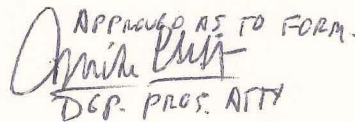 APPROVED AS TO FORM.
DEP. PROS. ATTY